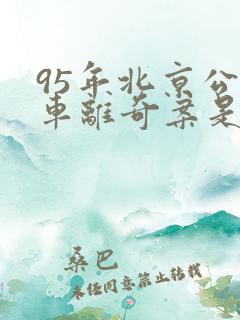 95年北京公
車離奇案是
桑巴
未经同意禁止转载